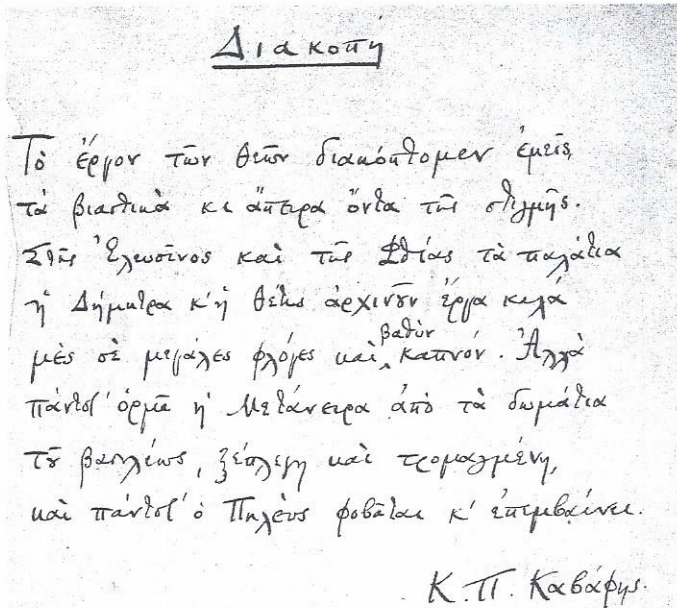 Διακοπή
Τὸ ἔργον τῶν θεῶν διακόπτομεν ἐμεῖς,
τὰ βιαστικὰ κι ἄπειρα ὄντα τῆς στιγμῆς.
Στῆς Ἐλευσῖνος καὶ τῆς Φθίας τὰ παλάτια
ἡ Δήμητρα κ' ἡ Θέτις ἀρχινοῦν ἔργα καλὰ
μὲς σὲ μεγάλες φλόγες καὶ βαθὺν καπνόν. Ἀλλὰ
πάντοτ' ὁρμᾶ ἡ Μετάνειρα ἀπὸ τὰ δωμάτια
τοῦ βασιλέως, ξέπλεγη καὶ τρομαγμένη,
καὶ πάντοτ' ὁ Πηλεὺς φοβᾶται κ' ἐπεμβαίνει.
Κ. Π. Καβάφης.